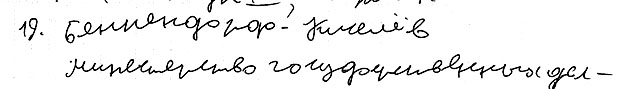 19. Бенкендорф - Киселёв
министерство государственных дел -